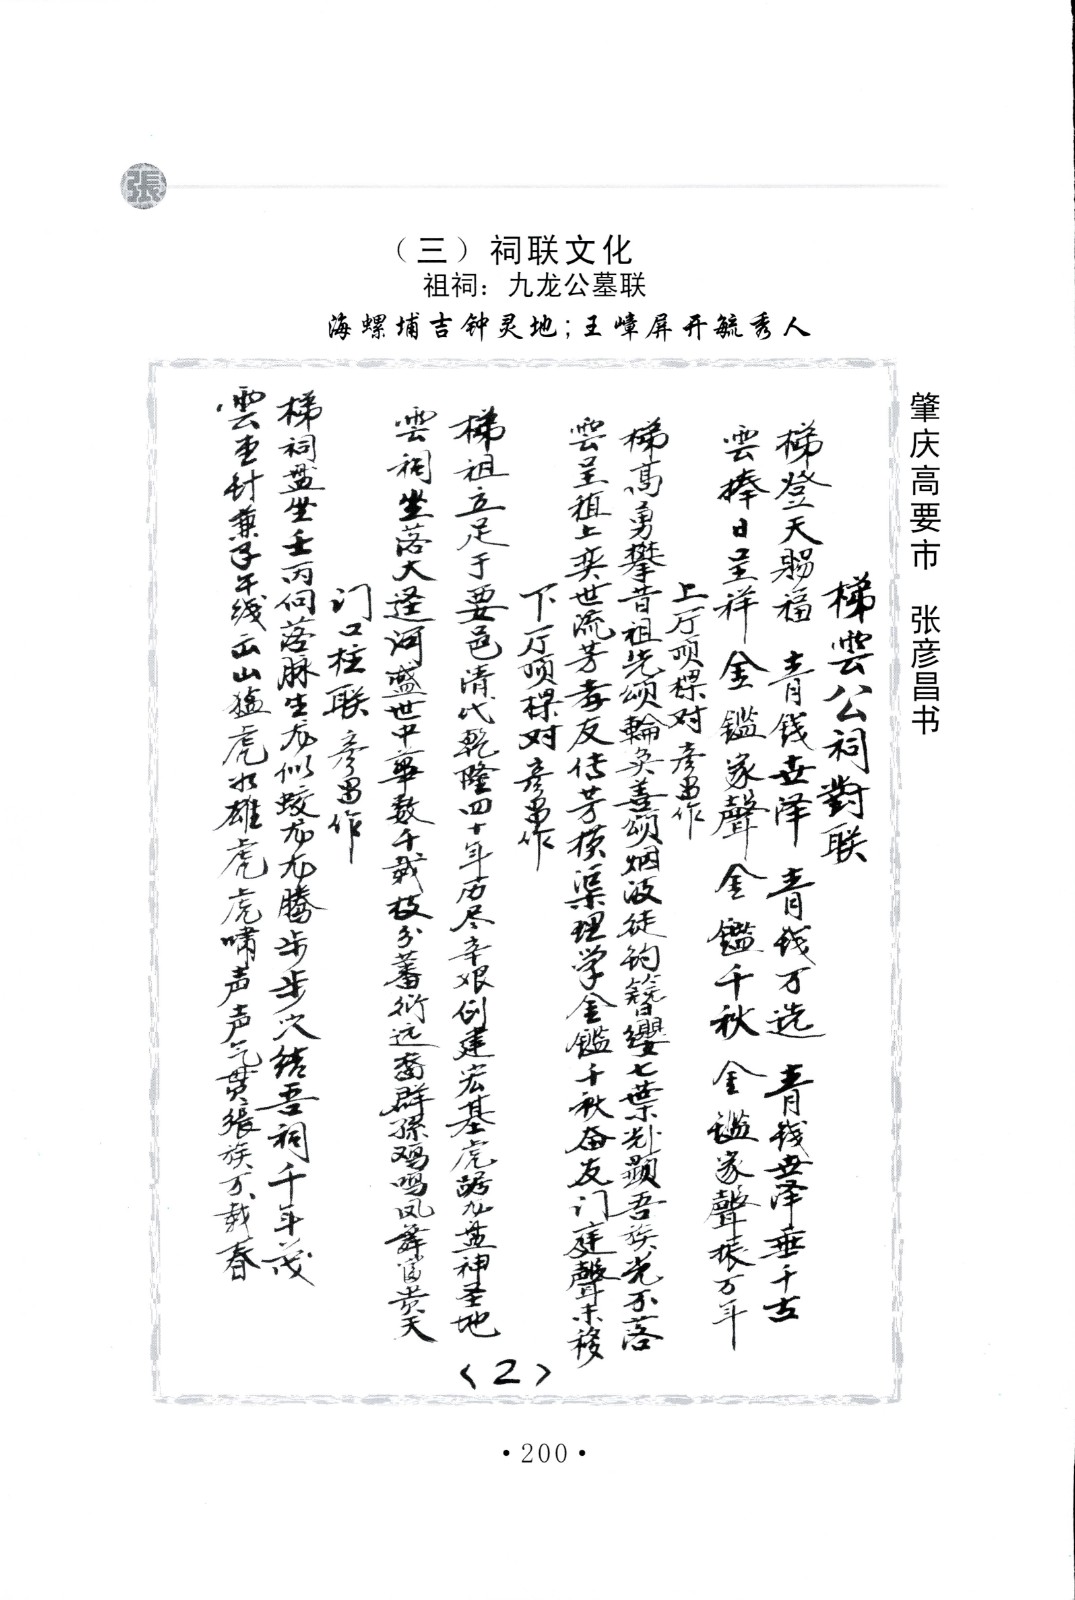 張
（三）祠联文化
祖祠：九龙公墓联
海螺埔吉钟灵地；王嶂屏开毓秀人
肇庆高要市　张彦昌书
梯雲公祠對联
梯登天賜福 青钱世泽 青钱万选 青钱世泽垂千古
雲捧日呈祥 金鑑家聲 金鑑千秋 金鑑家聲振万年
上厅顶樑对 彦昌作
梯高勇攀昔祖先颂輪奂善颂烟波徒钓簪纓七葉光顯吾族光不落
雲呈祖上奕世流芳孝友传芳横渠理学金鑑千秋孝友门庭聲未移
下厅顶樑对 彦昌作
梯祖立足于要邑清代乾隆四十年历尽辛艰创建宏基虎踞龙盘神圣地
雲祠坐落大迳河盛世中華数千载枝分蕃衍远裔群孫鸡鸣凤舞富贵天
门口柱联 彦昌作
梯祠盘坐壬丙向落脉生龙似蛟龙龙腾步步穴结吾祠千年茂
雲查针兼子午线函山猛虎 雄虎虎啸声声气贯張族万载春
〈2〉
·200·